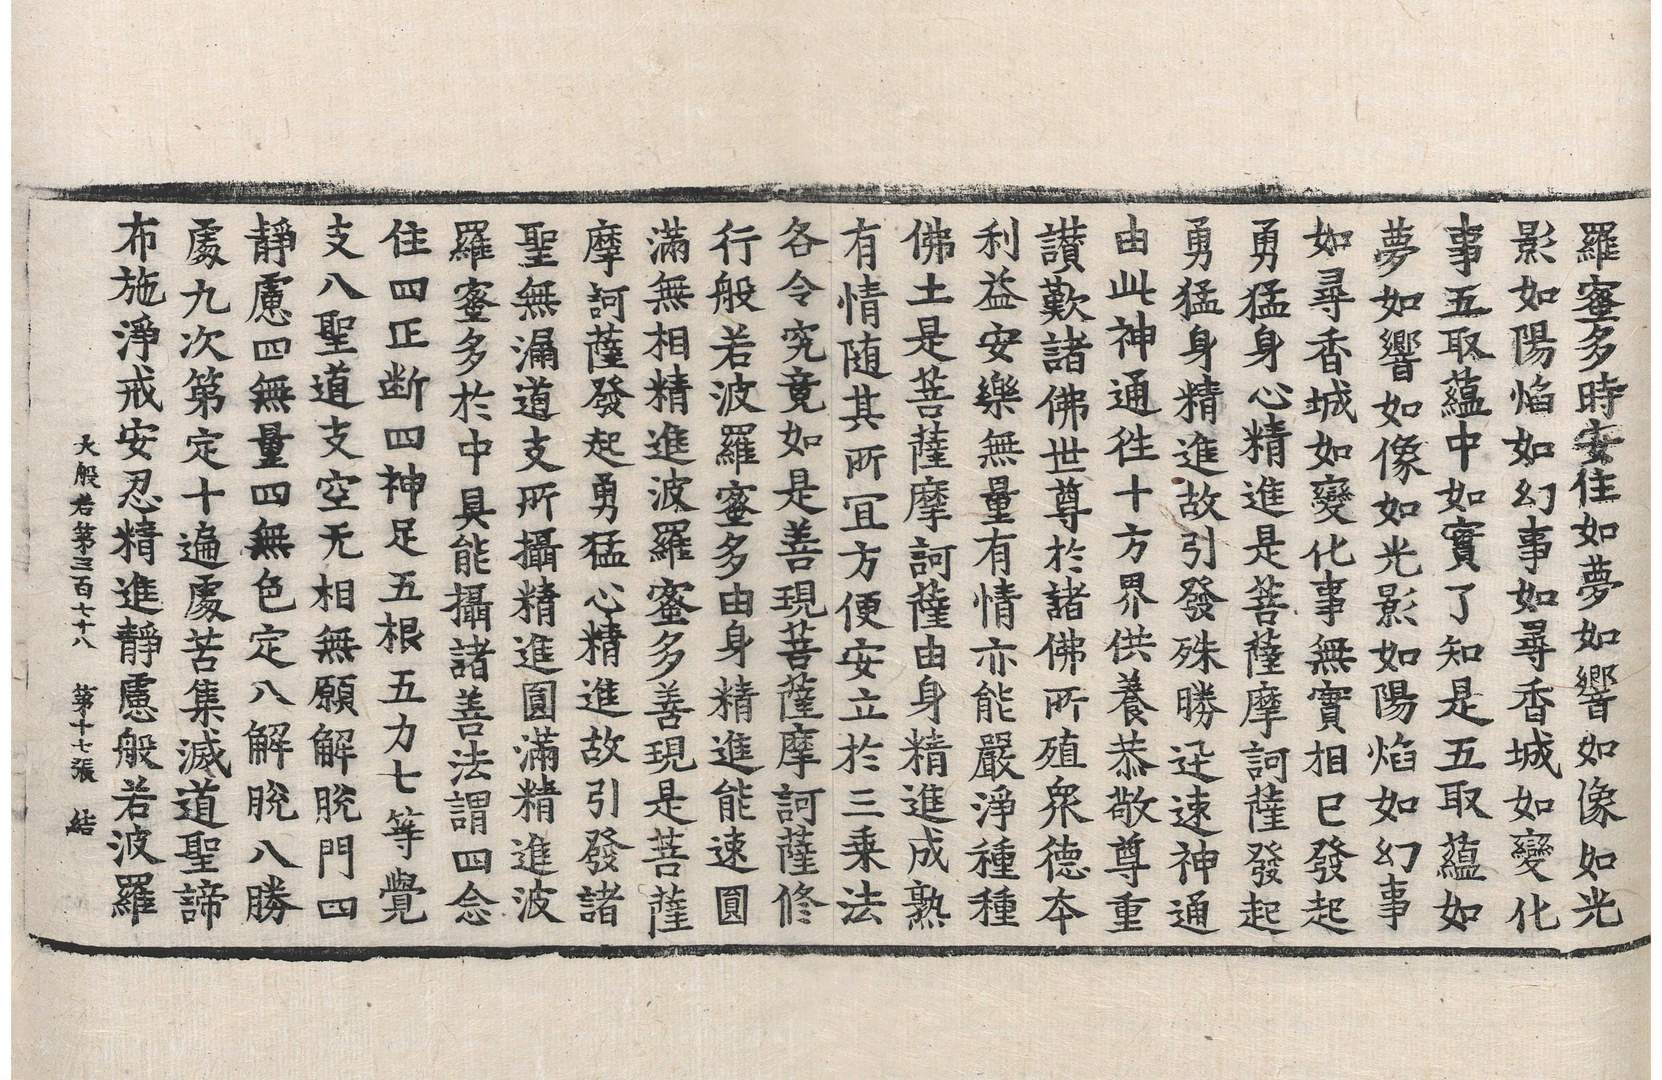 羅蜜多時安住如夢如響如像如光
影如陽焰如幻事如尋香城如變化
事五取蘊中如實了知是五取蘊如
夢如響如像如光影如陽焰如幻事
如尋香城如變化事無實相已發起
勇猛身心精進是菩薩摩訶薩發起
勇猛身精進故引發殊勝迅速神通
由此神通往十方界供養恭敬尊重
讃歎諸佛世尊於諸佛所殖衆德本
利益安樂無量有情亦能嚴淨種種
佛土是菩薩摩訶薩由身精進成熟
有情随其所冝方便安立於三乗法
各令究竟如是善現菩薩摩訶薩修
行般若波羅蜜多由身精進能速圓
滿無相精進波羅蜜多善現是菩薩
摩訶薩發起勇猛心精進故引發諸
聖無漏道支所攝精進圓滿精進波
羅蜜多於中具能攝諸善法謂四念
住四正断四神足五根五力七等覺
支八聖道支空无相無願解脫門四
靜慮四無量四無色定八解脫八勝
處九次第定十遍處苦集滅道聖諦
布施淨戒安忍精進靜慮般若波羅
大般若第三百七十八 第十七張 結